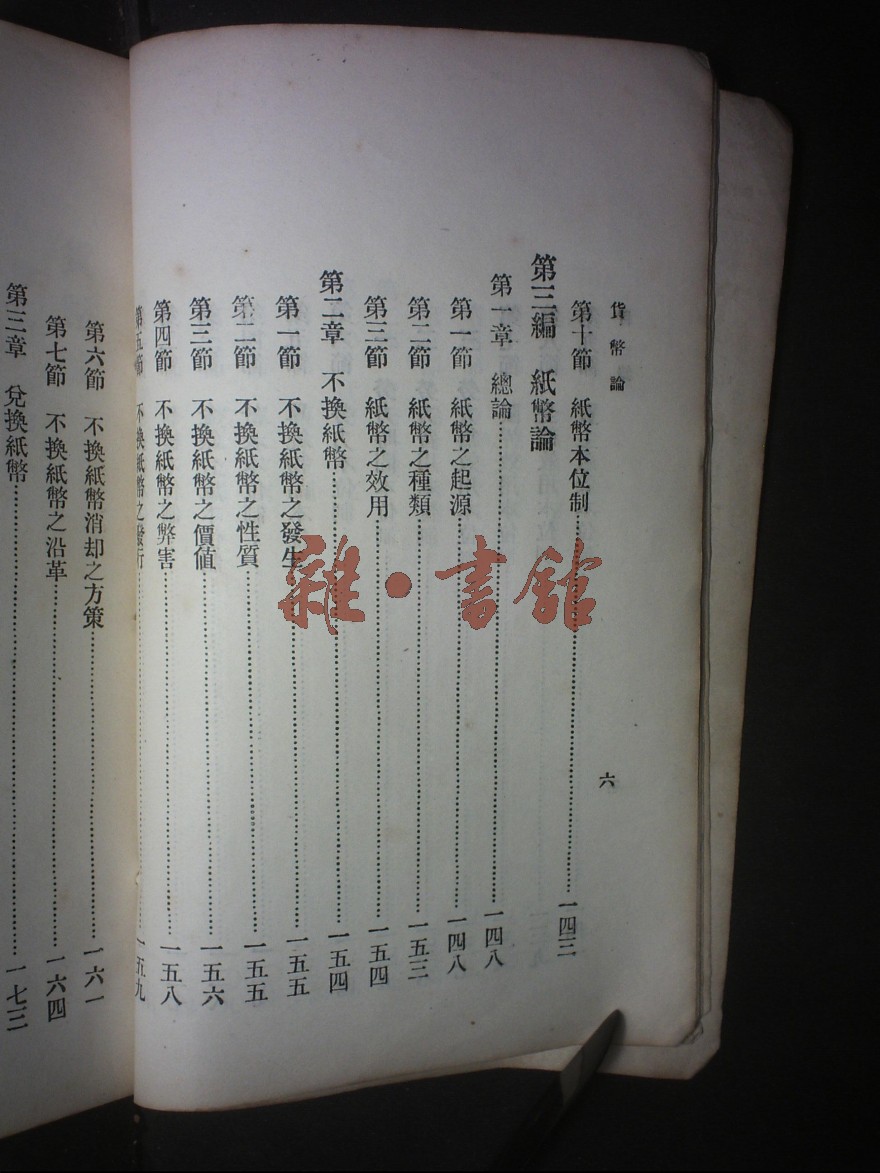 貨幣論
六
第十節 紙幣本位制 一四三
第三編 紙幣論
第一章 總論 一四八
第一節 紙幣之起源 一四八
第二節 紙幣之種類 一五三
第三節 紙幣之效用 一五四
第二章 不換紙幣 一五四
第一節 不換紙幣之發生 一五五
第二節 不換紙幣之性質 一五五
第三節 不換紙幣之價值 一五六
第四節 不換紙幣之弊害 一五八
第五節 不換紙幣之發行 一五九
第六節 不換紙幣消却之方策 一六一
第七節 不換紙幣之沿革 一六四
第三章 兌換紙幣 一七三
雜·書館